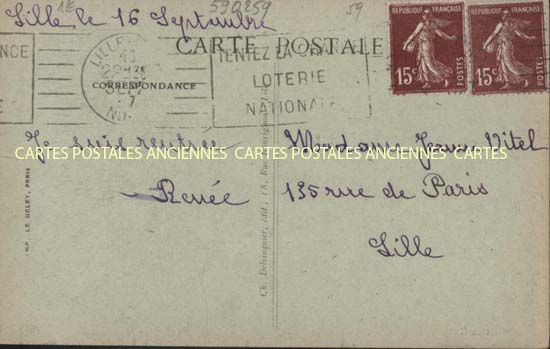 1€ 59Q259 59
Lille le 16 Septembre
CARTE POSTALE
CORRESPONDANCE
LILLE
NCE
TENTEZ LA
LOTERIE
NATIONALE
REPUBLIQUE FRANÇAISE
15c POSTES
REPUBLIQUE FRANÇAISE
15c POSTES
Je suis rentrée
Renée
Madame Jean Vitel
135 rue de Paris
Lille
CARTES POSTALES ANCIENNES CARTES POSTALES ANCIENNES CARTES
IMP. LE DELEY, PARIS
Ch. Delvinquier, édit., 18, Rue